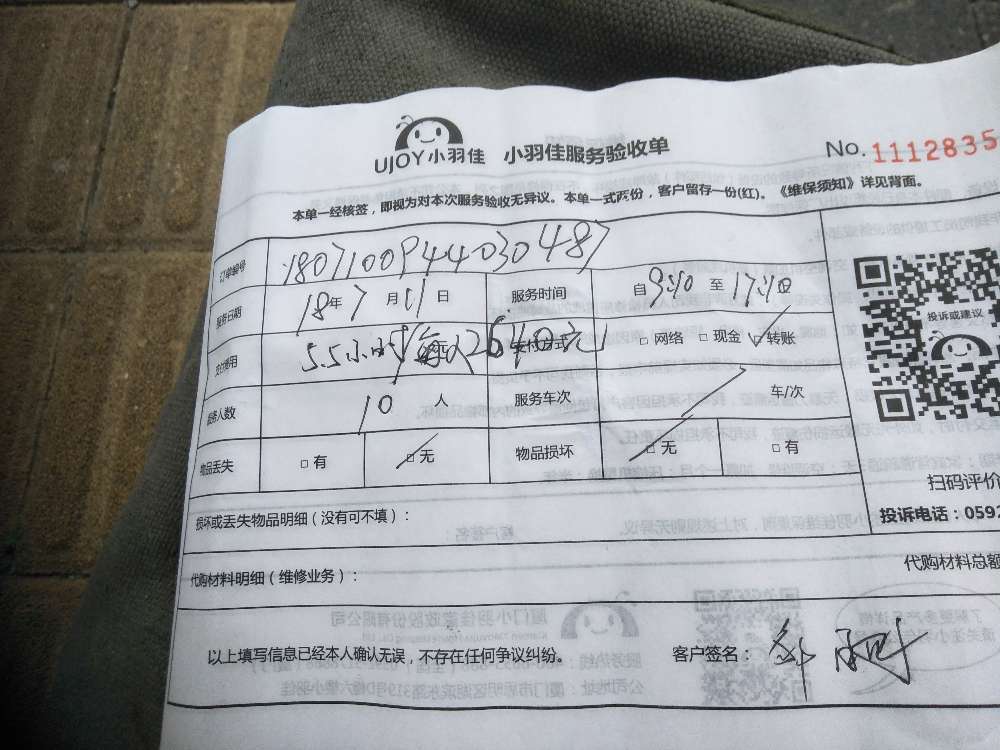 UJOY小羽佳 小羽佳服务验收单 No. 1112835
本单一经核签，即视为对本次服务验收无异议。本单一式两份，客户留存一份(红)。《维保须知》详见背面。
订单编号 1807100944030487
服务日期 18年7月11日 服务时间 自9:40 至17:40
支付费用 5.5小时 2640元 支付方式 □ 网络 □ 现金 □ 转账
服务人数 10 人 服务车次 车/次
物品丢失 □ 有 □ 无 物品损坏 □ 无 □ 有
投诉或建议
扫码评价
投诉电话：0592
损坏或丢失物品明细（没有可不填）：
代购材料明细（维修业务）： 代购材料总额
以上填写信息已经本人确认无误，不存在任何争议纠纷。 客户签名：